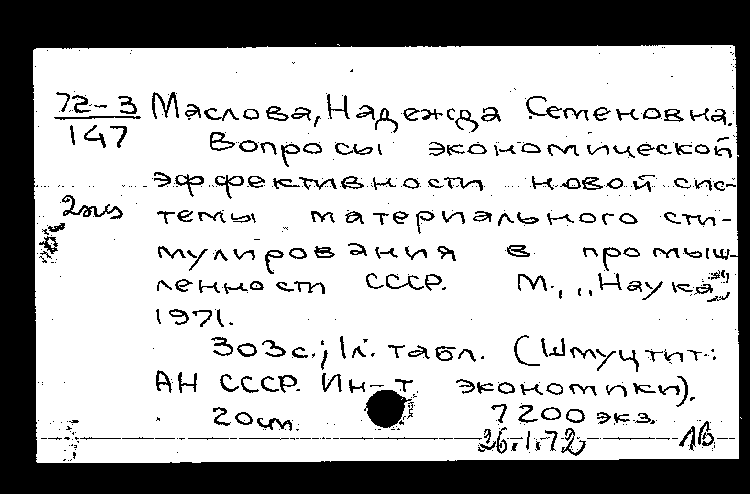 72-3 Маслова, Надежда Семеновна.
147
Вопросы экономической
эффективности новой сис-
2экз темы материального сти-
мулирования в промыш-
ленности СССР. М., „Наука"
1971.
303с.; 1л. табл. (Шмуцтит.:
АН СССР. Ин-т экономики).
20см. 7200 экз.
26.1.72 1В